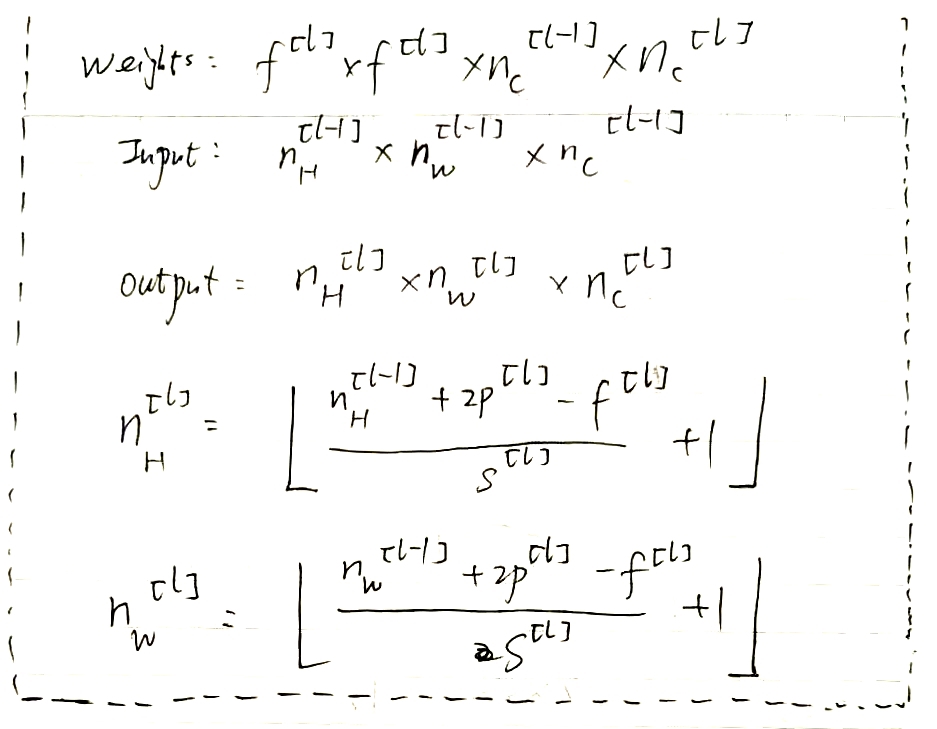 Weights: f^[l] × f^[l] × n_C^[l-1] × n_C^[l]
Input: n_H^[l-1] × n_W^[l-1] × n_C^[l-1]
Output = n_H^[l] × n_W^[l] × n_C^[l]
n_H^[l] = ⌊ (n_H^[l-1] + 2p^[l] - f^[l]) / s^[l] + 1 ⌋
n_W^[l] = ⌊ (n_W^[l-1] + 2p^[l] - f^[l]) / s^[l] + 1 ⌋